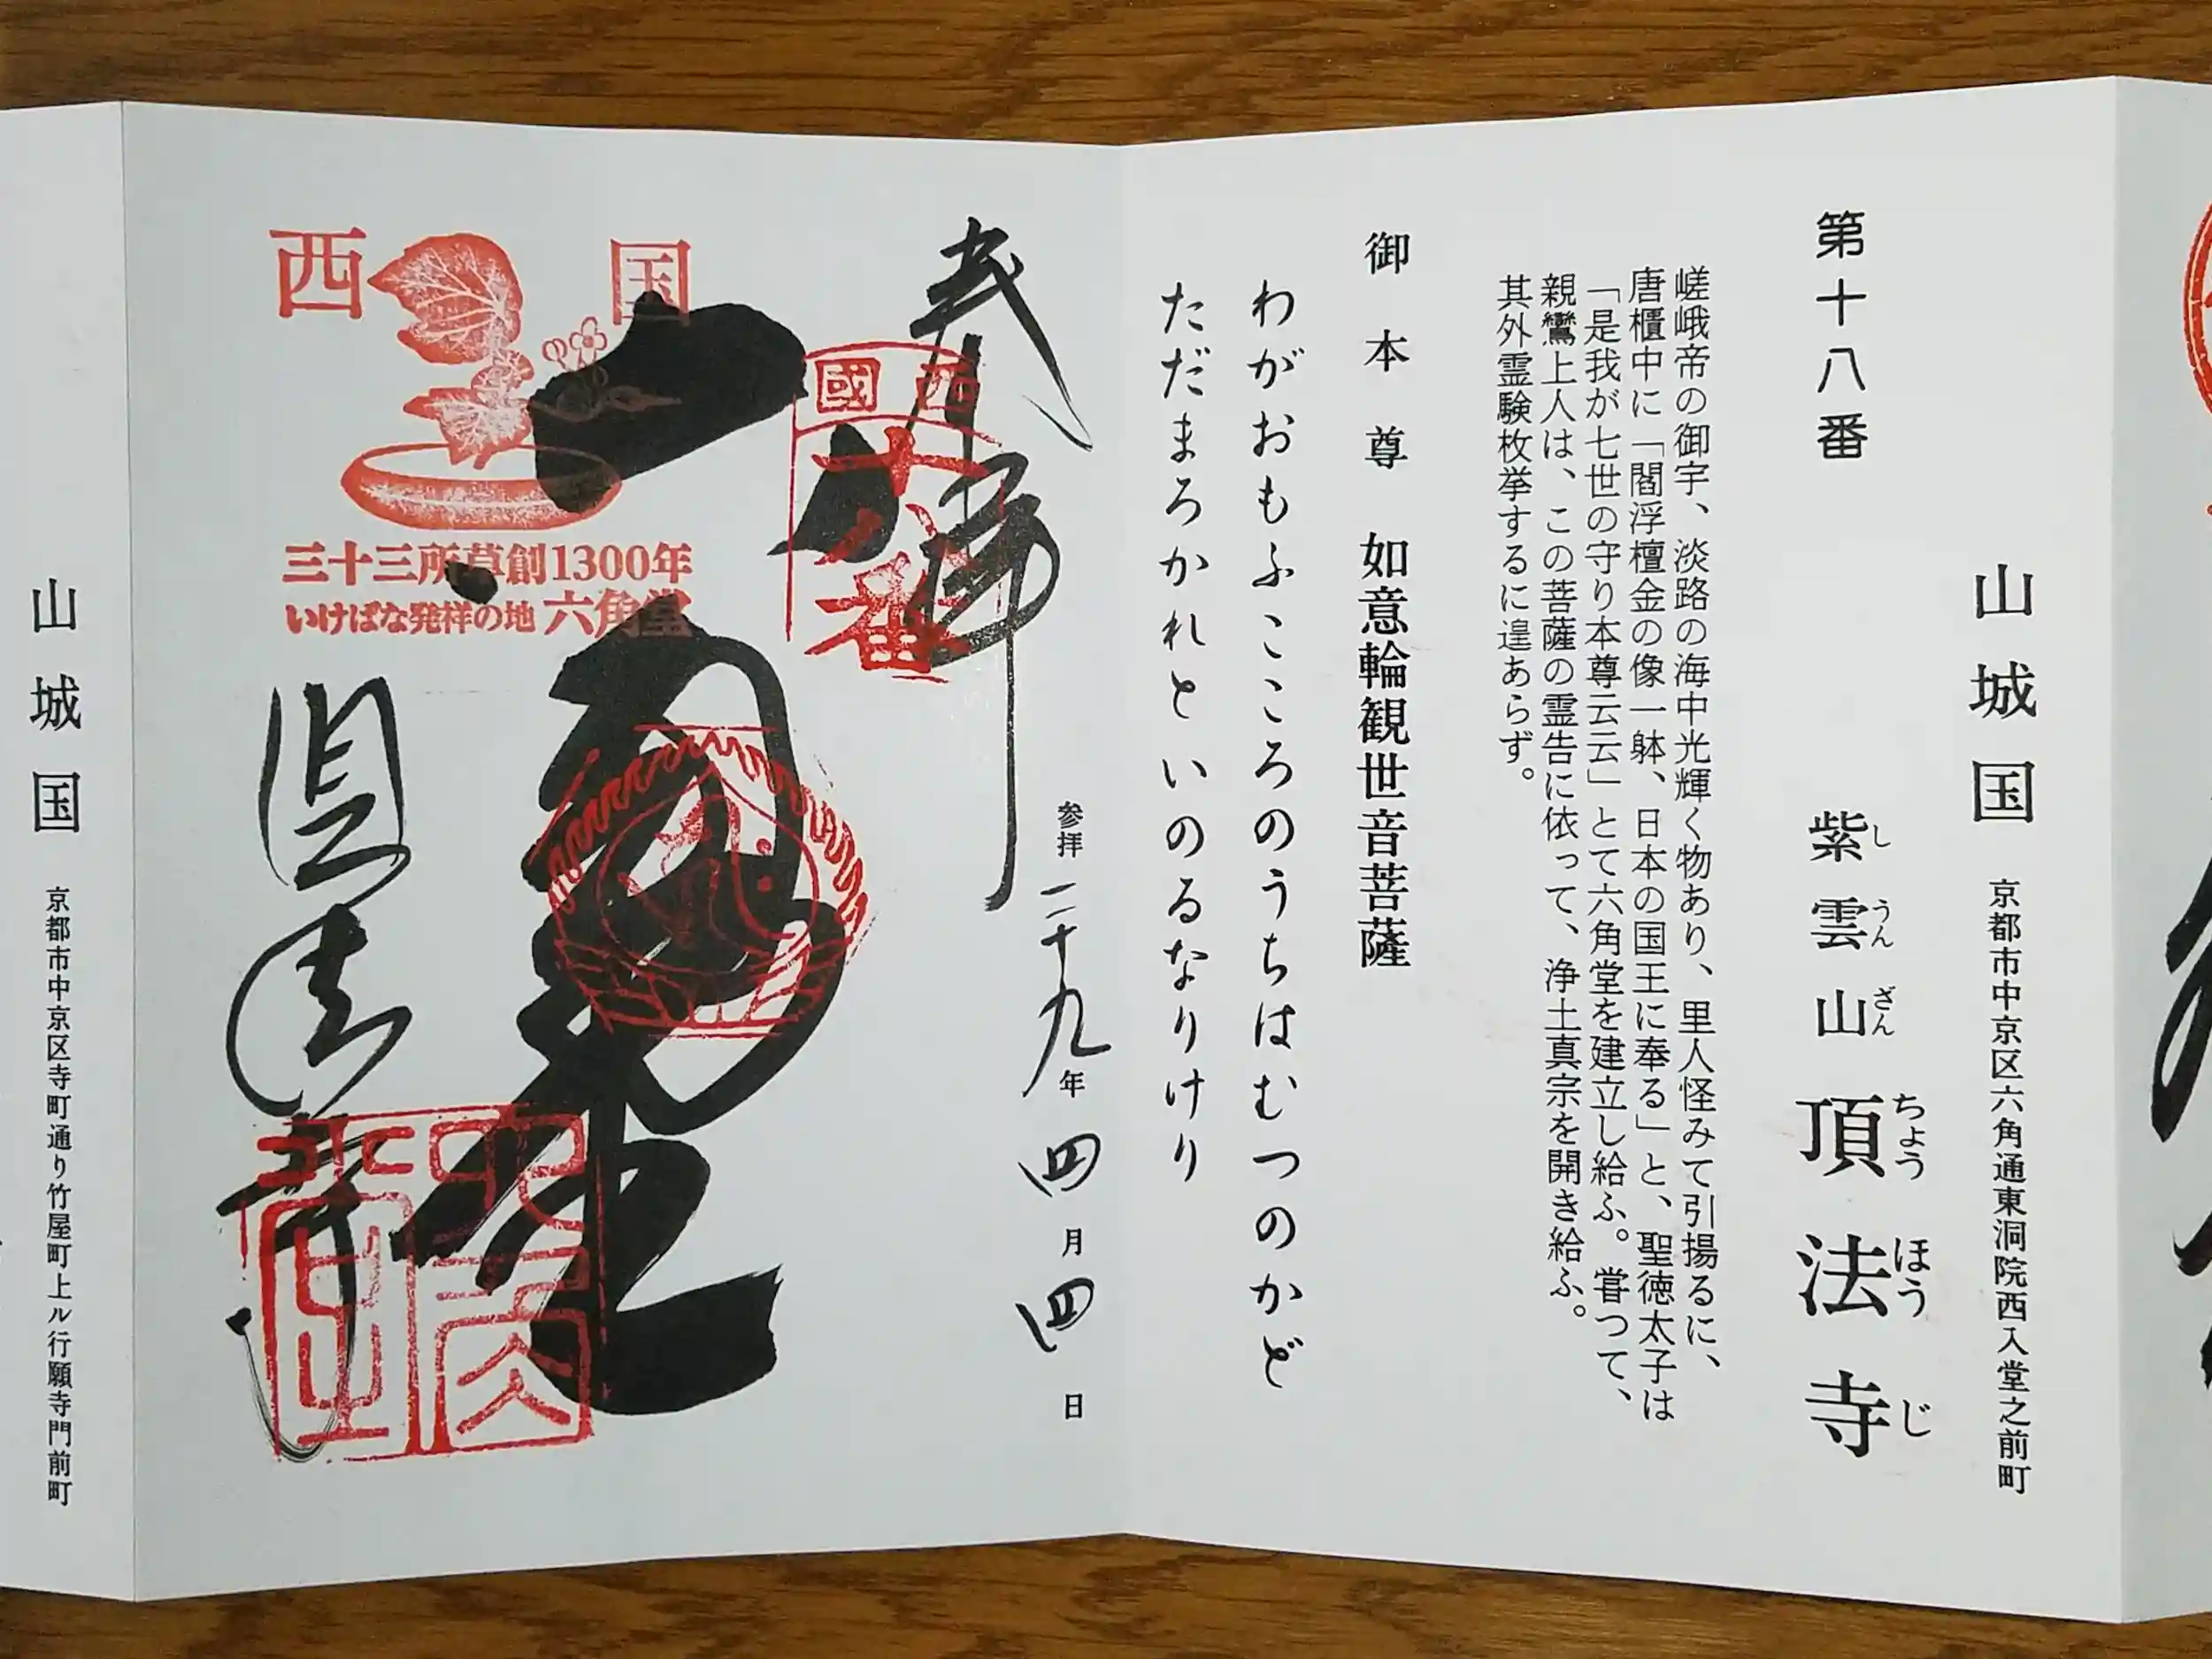 山城国 京都市中京区六角通東洞院西入堂之前町
第十八番 紫雲山 頂法寺
し うん ざん ちょう ほう じ
嵯峨帝の御宇、淡路の海中光輝く物あり、里人怪みて引揚るに、
唐櫃中に「閻浮檀金の像一躰、日本の国王に奉る」と、聖徳太子は
「是我が七世の守り本尊云云」とて六角堂を建立し給ふ。嘗つて、
親鸞上人は、この菩薩の霊告に依って、浄土真宗を開き給ふ。
其外霊験枚挙するに遑あらず。
御本尊 如意輪観世音菩薩
わがおもふこころのうちはむつのかど
ただまろかれといのるなりけり
奉拝
参拝 二十九年 四月 四日
西國
十八番
西国
三十三所草創1300年
いけばな発祥の地 六角堂
六角堂
頂法寺
山城国 京都市中京区寺町通り竹屋町上ル行願寺門前町